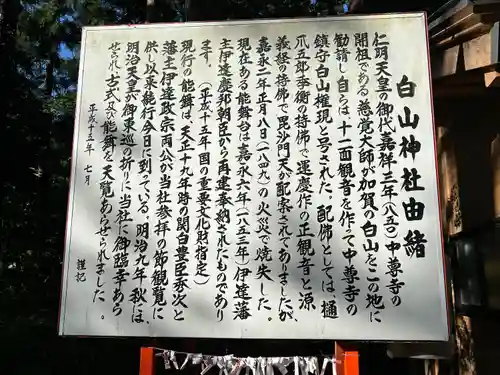 白山神社由緒
仁明天皇の御代嘉祥三年(八五〇)中尊寺の
開祖である慈覚大師が加賀の白山をこの地に
勧請し自らは十一面観音を作って中尊寺の
鎮守白山権現と号された。配佛としては樋
爪五郎季衡の持佛で運慶作の正観音と源
義経の持佛で毘沙門天が配案されてありましたが、
嘉永二年正月八日(一八四九)の火災で焼失した。
現在ある能舞台は嘉永六年(一八五三年)伊達藩
主伊達慶邦朝臣から再建奉納されたものであり
ます。(平成十五年国の重要文化財指定)
現行の能舞は、天正十九年時の関白豊臣秀次と
藩主伊達政宗両公が当社参拝の節観覧に
供し以来能行今日に到っている。明治九年秋には、
明治天皇が御東巡の折りに当社に御臨幸あら
せられ古式及び能舞を天覧あらせられました。
平成十五年 七月
謹記